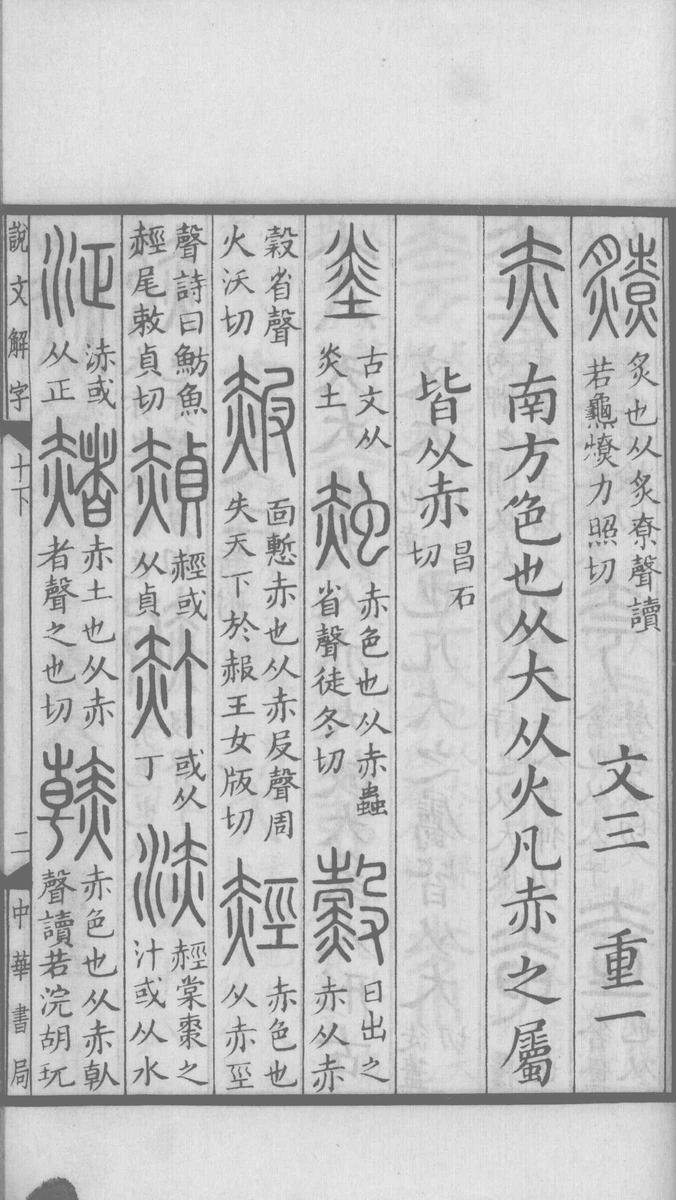 爒炙也从炙尞聲讀
若龜燎力照切
文三 重一
赤南方色也从大从火凡赤之屬
皆从赤昌石
切
烾古文从
炎土
赨赤色也从赤蟲
省聲徒冬切
𧹲日出之
赤从赤
㱿省聲
火沃切
赧面慙赤也从赤𠬝聲周
失天下於赧王女版切
赬赤色也
从赤巠
聲詩曰魴魚
赬尾敕貞切
赬䞓或
从貞
䞓或从
丁
浾䞓棠棗之
汁或从水
泟浾或
从正
赭赤土也从赤
者聲之也切
赤色也从赤倝
聲讀若浣胡玩
說文解字
十下
二
中華書局